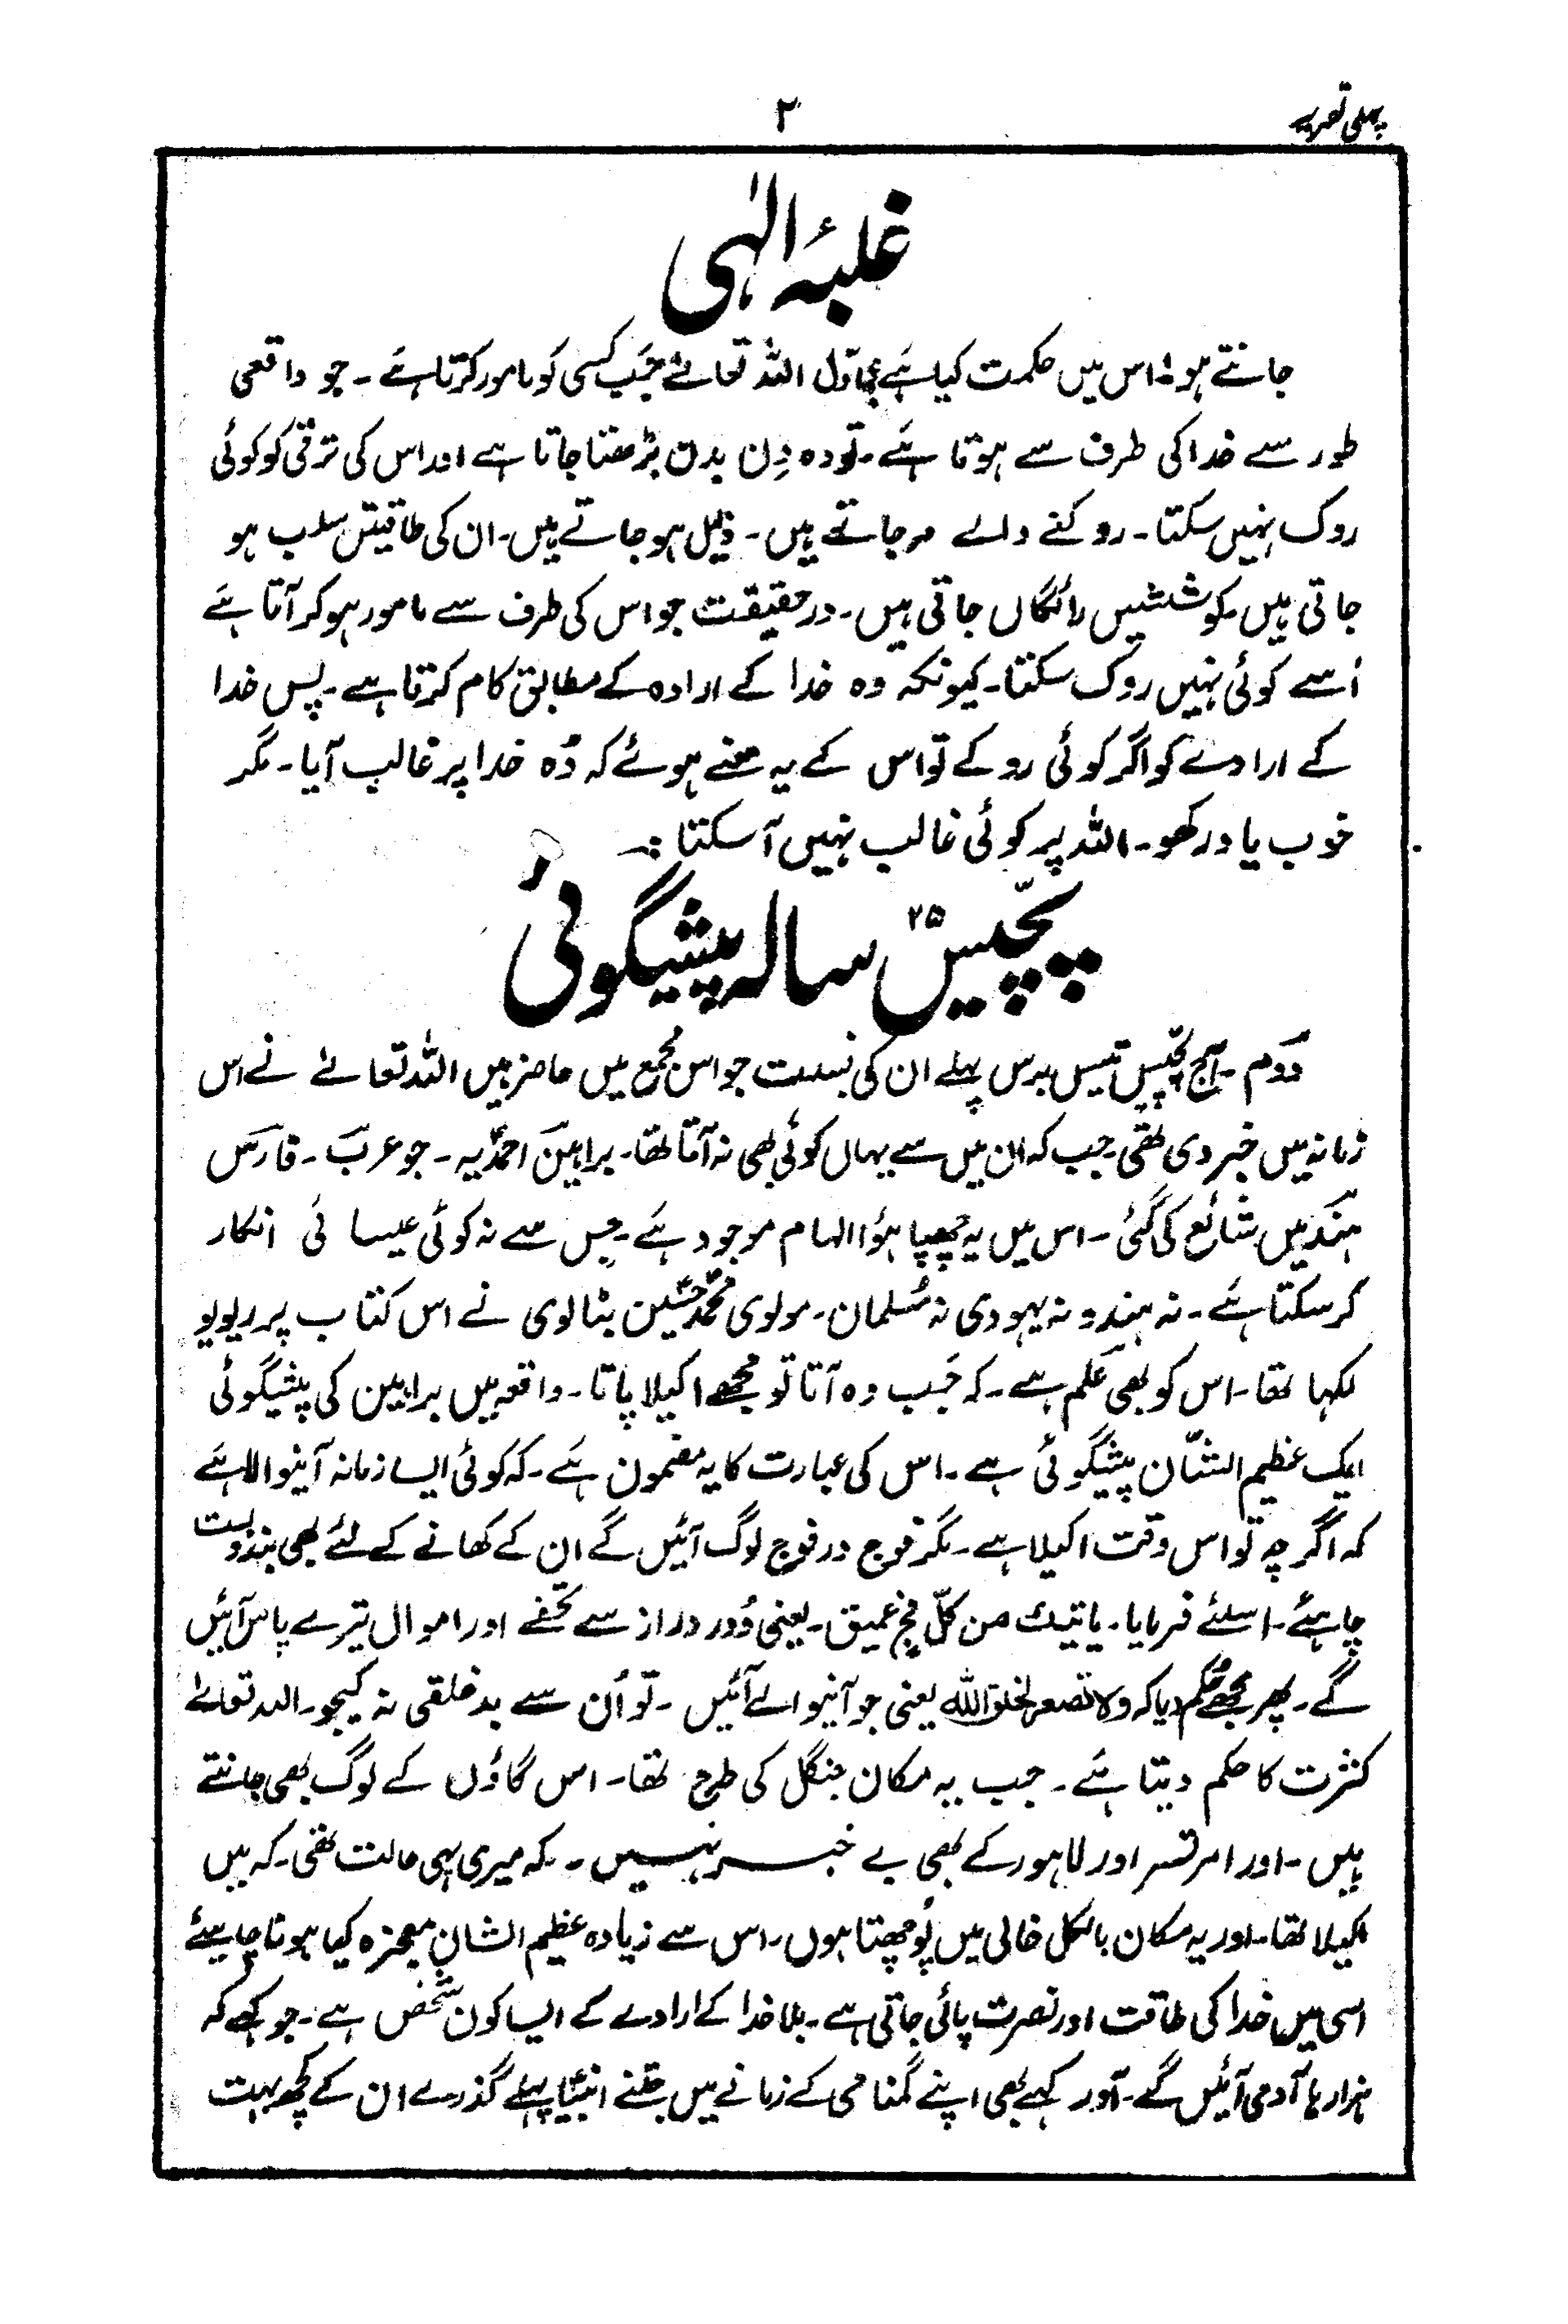 پہلی تقریر
۳
غلبۂ الٰہی
جانتے ہو! اس میں حکمت کیا ہے اوّل اللہ تعالےٰ جب کسی کو مامور کرتا ہے۔ جو واقعی
طور سے خدا کی طرف سے ہوتا ہے۔ تو وہ دِن بدن بڑھتا جاتا ہے اور اس کی ترقی کو کوئی
روک نہیں سکتا۔ روکنے والے مر جاتے ہیں۔ ذلیل ہو جاتے ہیں۔ ان کی طاقیتں سلب ہو
جاتی ہیں۔ کوششیں رائگاں جاتی ہیں۔ درحقیقت جو اس کی طرف سے مامور ہو کر آتا ہے
اُسے کوئی نہیں روک سکتا۔ کیونکہ وہ خدا کے ارادہ کے مطابق کام کرتا ہے۔ پس خدا
کے ارادے کو اگر کوئی روکے تو اس کے یہ معنے ہوئے کہ وُہ خدا پر غالب آیا۔ مگر
خوب یاد رکھو۔ اللہ پر کوئی غالب نہیں آ سکتا ؞
پچّیس ۲۵ سالہ پیشیگوئی
دوم۔ آج پچّیس تیس برس پہلے ان کی نسبت جو اس مجمع میں حاضر ہیں اللہ تعالےٰ نے اس
زمانہ میں خبر دی تھی جب کہ ان میں سے یہاں کوئی بھی نہ آتا تھا۔ براہین احمدؐیہ۔ جو عرب۔ فارس
ہند میں شائع کی گئی۔ اس میں یہ چھپا ہؤا الہام موجود ہے۔ جس سے نہ کوئی عیسائی انکار
کر سکتا ہے۔ نہ ہندو نہ یہودی نہ مُسلمان۔ مولوی محمدؐ حسین بٹالوی نے اس کتاب پر ریویو
لکہا تھا۔ اس کو بھی علم ہے۔ کہ جَب وہ آتا تو مجھے اکیلا پاتا۔ واقعہ میں براہین کی پیشیگوئی
ایک عظیم الشّان پیشیگوئی ہے۔ اس کی عبارت کا یہ مضمون ہے۔ کہ کوئی ایسا زمانہ آنیوالا ہے
کہ اگرچہ تو اس وقت اکیلا ہے۔ مگر فوج در فوج لوگ آئیں گے ان کے کھانے کے لئے بھی بندوبست
چاہئے۔ اسلئے فرمایا۔ یاتیک من کلّ فج عمیق۔ یعنی دُور دراز سے تحفے اور اموال تیرے پاس آئیں
گے۔ پھر مجھے حُکم دیا کہ ولا تصعر لخلق اللہ یعنی جو آنیوالے آئیں۔ تو اُن سے بدخلقی نہ کیجو۔ اللہ تعالےٰ
کثرت کا حکم دیتا ہے۔ جب یہ مکان جنگل کی طرح تھا۔ اس گاؤں کے لوگ بھی جانتے
ہیں۔ اور امرتسر اور لاہور کے بھی بے خبر نہیں۔ کہ میری یہی حالت تھی۔ کہ میں
اکیلا تھا۔ اور یہ مکان بالکل خالی میں پُوچھتا ہوں۔ اس سے زیادہ عظیم الشان معجزہ کیا ہونا چاہیئے
اسی میں خدا کی طاقت اور نصرت پائی جاتی ہے۔ بلا خدا کے ارادے کے ایسا کون شخص ہے۔ جو کہے کہ
ہزارہا آدمی آئیں گے۔ اَور کہے بھی اپنے گمنامی کے زمانے میں جتنے انبیاؑ پہلے گذرے ان کے کچھ بہت